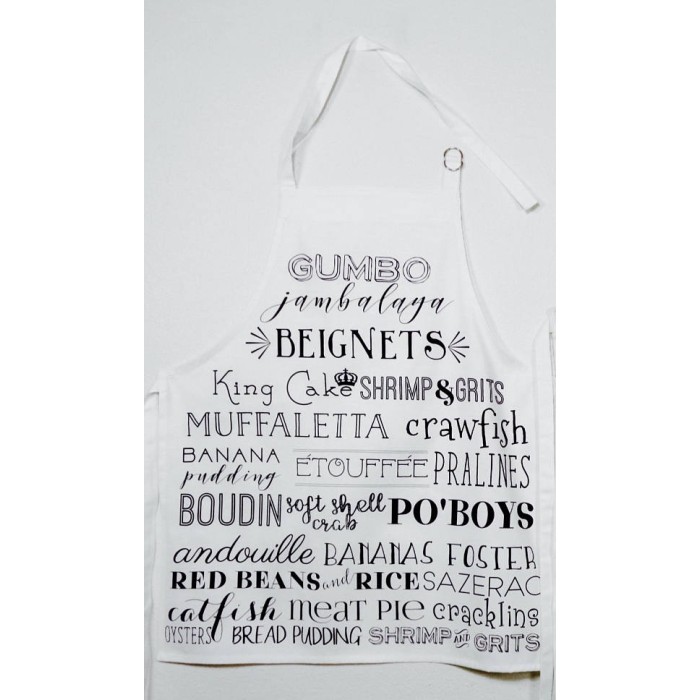 GUMBO
jambalaya
BEIGNETS
King Cake SHRIMP & GRITS
MUFFALETTA crawfish
BANANA pudding ÉTOUFFÉE PRALINES
BOUDIN soft shell crab PO'BOYS
andouille BANANAS FOSTER
RED BEANS and RICE SAZERAC
catfish MEAT PIE cracklins
OYSTERS BREAD PUDDING SHRIMP AND GRITS